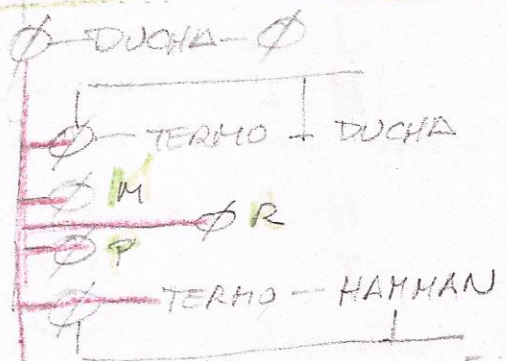 Ø - DUCHA - Ø
Ø - TERMO - DUCHA
Ø M
Ø R
Ø P
Ø TERMO - HAMMAN